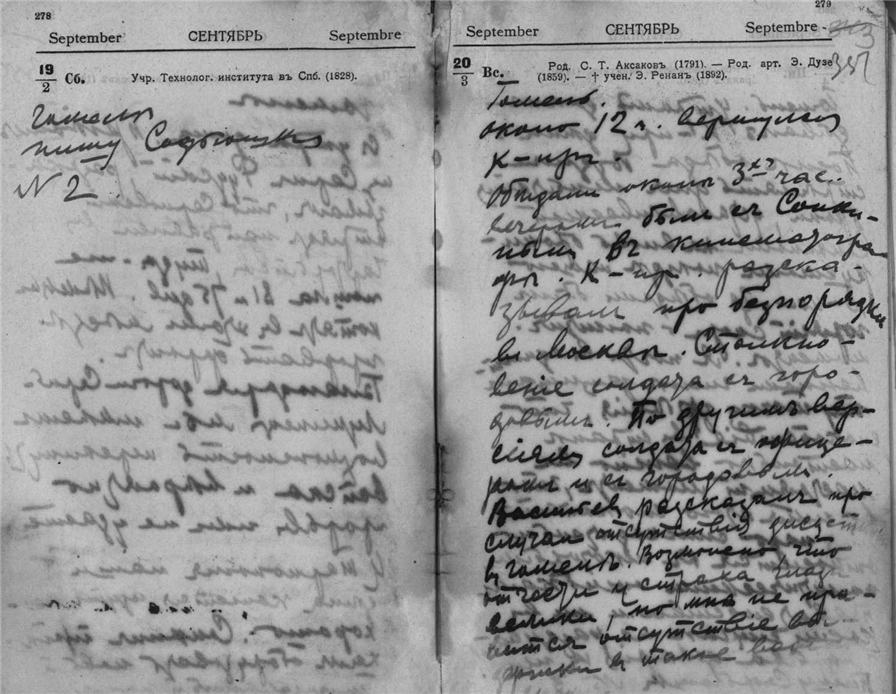 278
September СЕНТЯБРЬ Septembre
19
2
Сб.
Учр. Технолог. института въ Спб. (1828).
Гомель
пишу
№ 2
279
September СЕНТЯБРЬ Septembre
351
20
3
Вс.
Род. С. Т. Аксаковъ (1791). — Род. арт. Э. Дузе
(1859). — † учен. Э. Ренанъ (1892).
Гомель.
около 12 ч. вернулся
К-нръ.
Обѣдали около 3-хъ час.
вечеромъ были съ Сонки-
нымъ въ кинематогра-
фѣ. К-нръ разска-
зывалъ про безпорядки
въ Москвѣ. Столкно-
веніе солдата съ горо-
довымъ. По другимъ вер-
сіямъ солдата съ офице-
ромъ и съ городовымъ
Васильев разсказалъ про
случаи отсутствія дисцепл
въ Гомелѣ. Возможно что
отчасти и страха глаза
велики, но мнѣ не нра-
вится отсутствіе вы-
въ такое